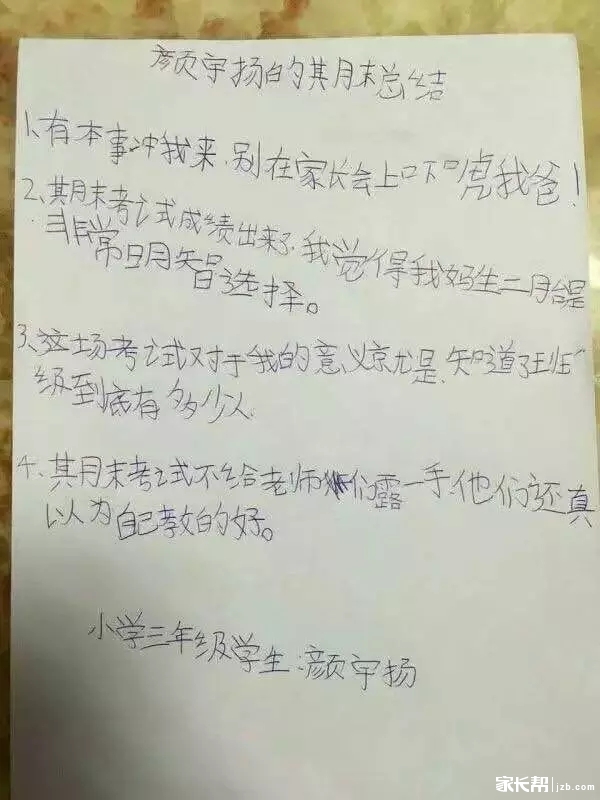 颜宇扬的期末总结
1、有本事冲我来,别在家长会上吓唬我爸!
2、期末考试成绩出来了,我觉得我妈生二胎是
非常明智选择。
3、这场考试对于我的意义就是,知道了班
级到底有多少人
4、期末考试不给老师们露一手,他们还真
以为自己教的好。
小学三年级学生:颜宇扬
家长帮 jzb.com